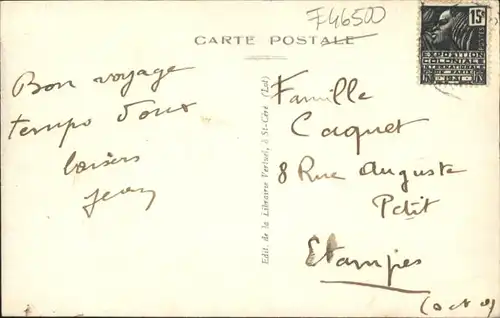 F46500
CARTE POSTALE
15c
POSTES
EXPOSITION
COLONIALE
INTERNATIONALE
PARIS
1931
Bon voyage
temps doux
baisers
Jean
Edit. de la Librairie Vertuel, à St-Céré (Lot)
Famille
Caquet
8 Rue Auguste
Petit
Etampes